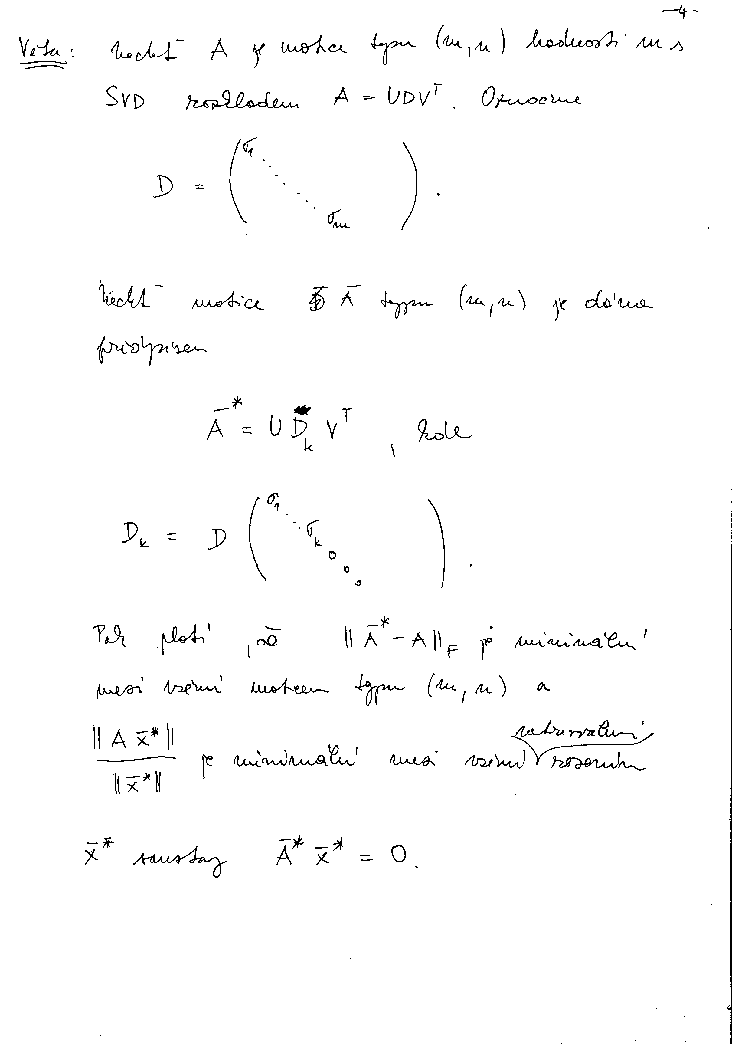 -4-
Věta: Nechť A je matice typu (m,n) hodnosti m s
SVD rozkladem A = UDVᵀ. Označme
D = ( σ₁ ⋱ σₘ ) .
Nechť matice Ā typu (m,n) je dána
předpisem
Ā* = U Dₖ Vᵀ , kde
Dₖ = D ( σ₁ ⋱ σₖ 0 0 0 ) .
Pak platí, že ‖Ā* - A‖_F je minimální
mezi všemi maticemi typu (m,n) a
‖A x̄*‖ / ‖x̄*‖ je minimální mezi všemi netriviálními řešeními
x̄* soustavy Ā* x̄* = 0.